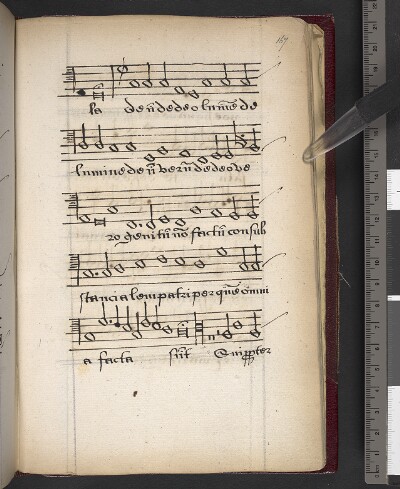 167
la de ñ de deo lumĩe de
lumine de ñ verũ de deo ve
ro genitũ nõ factũ consub
stancialem patri per quẽ omni
a facta sũt Qui ꝓpter